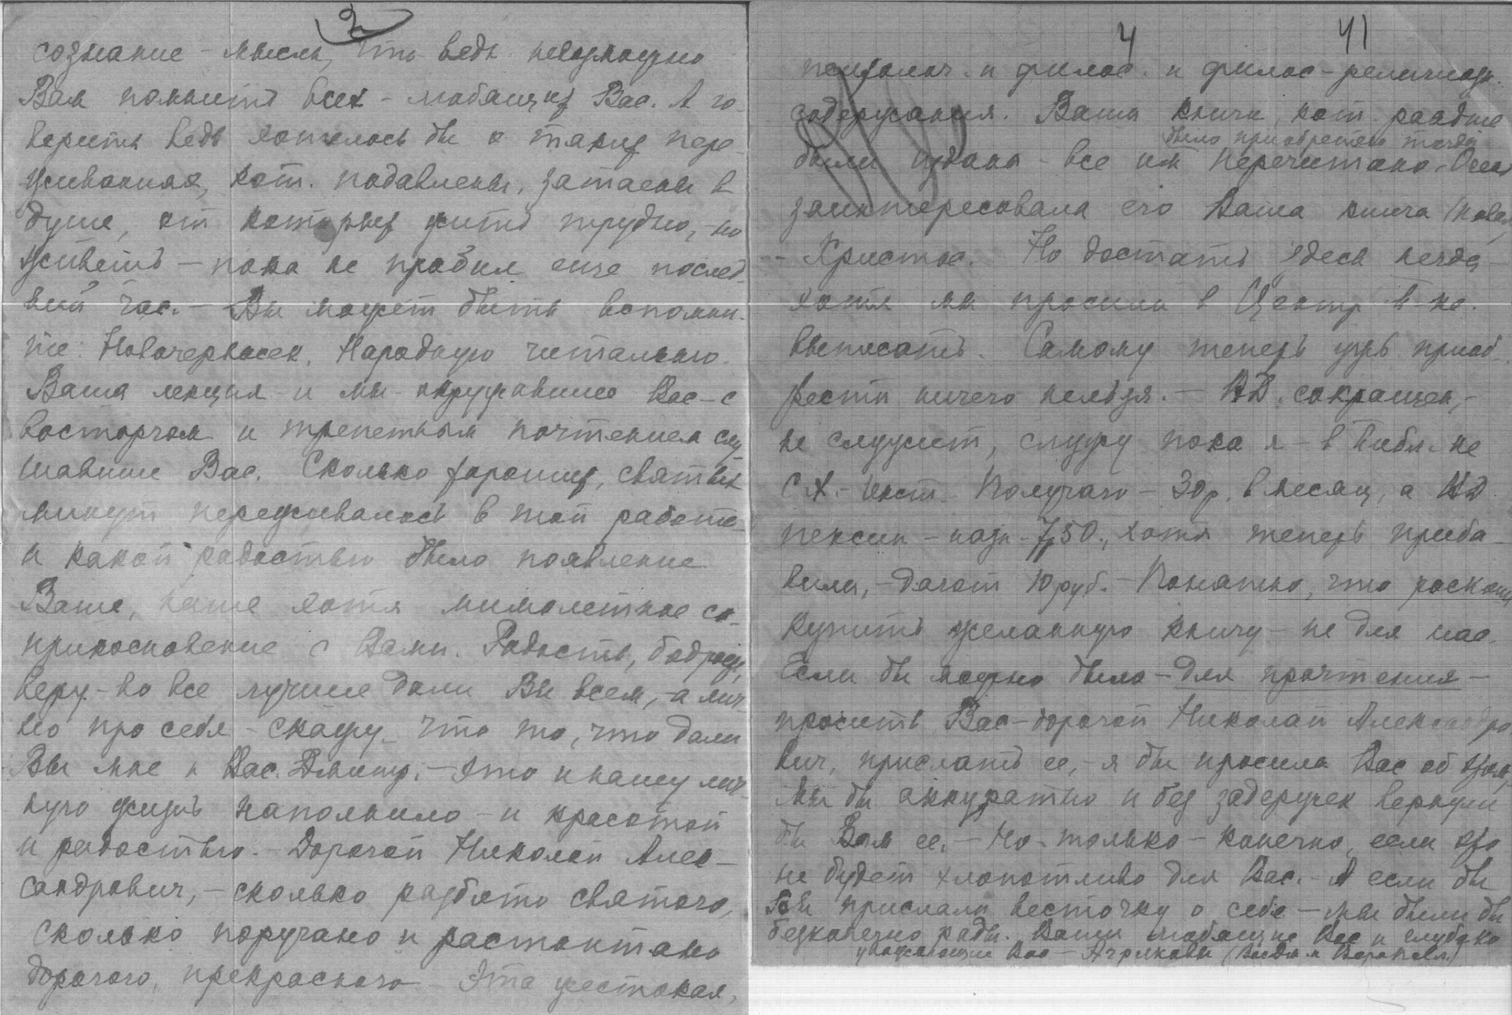 2
сознание – мысль, что ведь невозможно
Вам помнить всех – любящих Вас. А го-
ворить ведь хотелось бы о таких пере-
живаниях, кот. подавлены, затаены в
душе, от которых жить трудно, – но
живешь – пока не пробил еще послед-
ний час. – Вы может быть вспомни-
те: Новочеркасск, Народную читальню.
Ваша лекция – и мы – окружавшие Вас – с
восторгом и трепетным почтением слу
шавшие Вас. Сколько хороших, святых
минут переживалось в той работе
и какой радостью было появление
Ваше, наше хотя мимолетное со-
прикосновение с Вами. Радость, бодрость,
веру – во все лучшее дали Вы всем, – а лич
но про себя – скажу – что то, что дали
Вы мне и Вас. Дмитр. – это и нашу лич
ную жизнь наполнило – и красотой
и радостью. – Дорогой Николай Алек-
сандрович, – сколько разбито святого,
сколько поругано и растоптано
дорогого, прекрасного – Эта жестокая,
4 41
психолог. и филос. и филос – религиозн.
содержания. Ваши книги, кот. раньше
было приобретено тогда
были изданы – все им перечитано.
заинтересовала его Ваша книга
– Христос. Но достать здесь негде
хотя мы просили в Центр. б-ке
выписать. Самому теперь уж приоб
рести ничего нельзя. – ВД. сокращен, –
не служит, служу пока я – в библ-ке
С.Х. – Инст. – Получаю – 30 р. в месяц, а ВД
пенсии – 7,50., хотя теперь приба-
вили, – дают 10 руб. – Понятно, что роскошь
купить желанную книгу – не для нас.
Если бы можно было – для прочтения –
просить Вас – дорогой Николай Александро
вич, прислать ее, – я бы просила Вас об этом,
мы бы аккуратно и без задержек вернули
бы Вам ее. – Но – только – конечно, если это
не будет хлопотливо для Вас. – А если бы
Вы прислали весточку о себе – мы были бы
бесконечно рады. Ваши любящие Вас и глубоко
уважающие Вас –